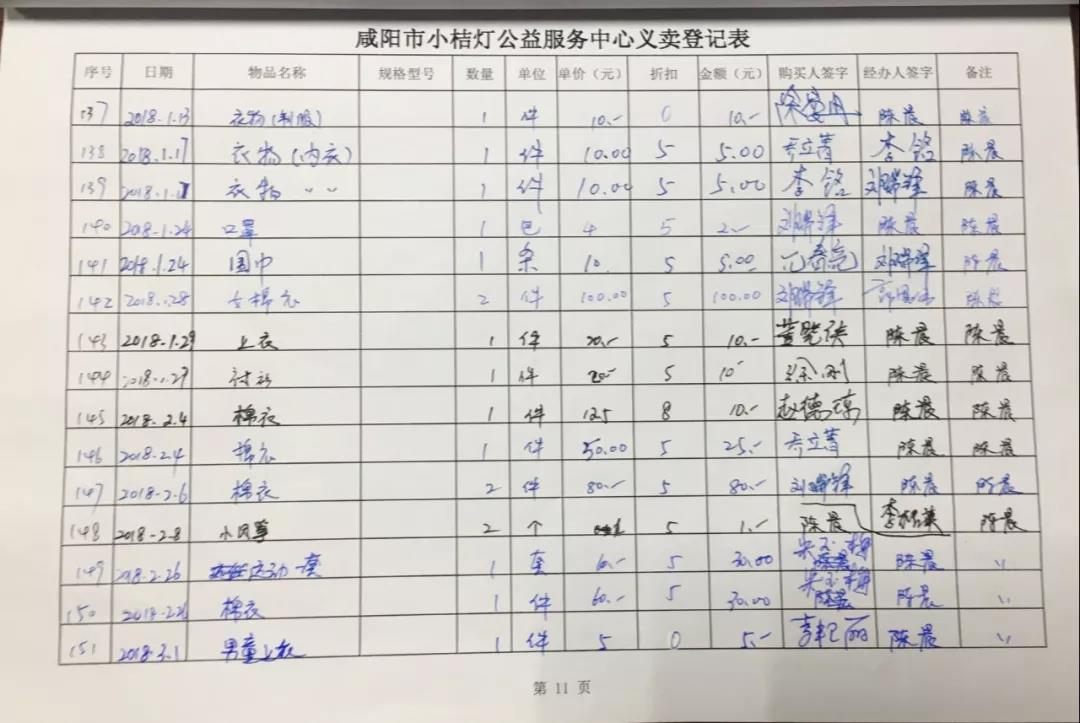 咸阳市小桔灯公益服务中心义卖登记表
序号 日期 物品名称 规格型号 数量 单位 单价（元） 折扣 金额（元） 购买人签字 经办人签字 备注
137 2018.1.13 衣物(制服) 1 件 10.- 0 10.- 陈晨 陈晨
138 2018.1.17 衣物(内衣) 1 件 10.00 5 5.00 李铭 陈晨
139 2018.1.17 衣物 〃 1 件 10.00 5 5.00 李铭 刘晓锋 陈晨
140 2018.1.24 口罩 1 包 4 5 2.- 刘晓锋 陈晨 陈晨
141 2018.1.24 围巾 1 条 10. 5 5.00 刘晓锋 陈晨
142 2018.1.28 棉衣 2 件 100.00 5 100.00 刘晓锋 陈晨
143 2018.1.29 上衣 1 件 20.- 5 10.- 陈晨 陈晨
144 2018.1.29 衬衫 1 件 20- 5 10- 陈晨 陈晨
145 2018.2.4 棉衣 1 件 12.5 8 10.- 赵德琦 陈晨 陈晨
146 2018.2.4 棉衣 1 件 50.00 5 25.- 陈晨 陈晨
147 2018.2.6 棉衣 2 件 80.- 5 80.- 刘晓锋 陈晨 陈晨
148 2018-2-8 2 个 5 1.- 陈晨 陈晨
149 2018.2.26 运动 1 套 60.- 5 30.00 宋玉梅 陈晨 〃
150 2018.2.26 棉衣 1 件 60.- 5 30.00 宋玉梅 陈晨 〃
151 2018.3.1 男童上衣 1 件 5 0 5.- 李艳丽 陈晨 〃
第 11 页